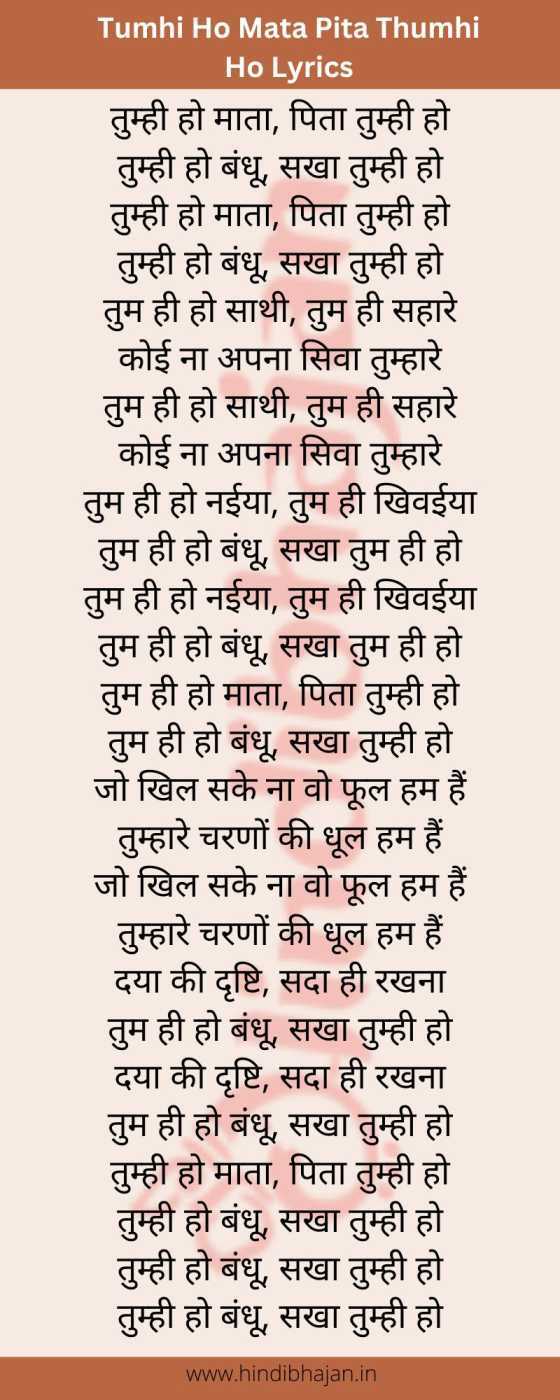 Tumhi Ho Mata Pita Thumhi
Ho Lyrics
तुम्ही हो माता, पिता तुम्ही हो
तुम्ही हो बंधू, सखा तुम्ही हो
तुम्ही हो माता, पिता तुम्ही हो
तुम्ही हो बंधू, सखा तुम्ही हो
तुम ही हो साथी, तुम ही सहारे
कोई ना अपना सिवा तुम्हारे
तुम ही हो साथी, तुम ही सहारे
कोई ना अपना सिवा तुम्हारे
तुम ही हो नईया, तुम ही खिवईया
तुम ही हो बंधू, सखा तुम ही हो
तुम ही हो नईया, तुम ही खिवईया
तुम ही हो बंधू, सखा तुम ही हो
तुम ही हो माता, पिता तुम्ही हो
तुम ही हो बंधू, सखा तुम्ही हो
जो खिल सके ना वो फूल हम हैं
तुम्हारे चरणों की धूल हम हैं
जो खिल सके ना वो फूल हम हैं
तुम्हारे चरणों की धूल हम हैं
दया की दृष्टि, सदा ही रखना
तुम ही हो बंधू, सखा तुम्ही हो
दया की दृष्टि, सदा ही रखना
तुम ही हो बंधू, सखा तुम्ही हो
तुम्ही हो माता, पिता तुम्ही हो
तुम्ही हो बंधू, सखा तुम्ही हो
तुम्ही हो बंधू, सखा तुम्ही हो
तुम्ही हो बंधू, सखा तुम्ही हो
www.hindibhajan.in
Hindibhajan